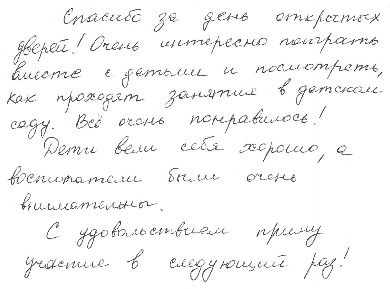 Спасибо за день открытых
дверей! Очень интересно поиграть
вместе с детьми и посмотреть,
как проходят занятия в детском
саду. Всё очень понравилось!
Дети вели себя хорошо, а
воспитатели были очень
внимательны.
С удовольствием приму
участие в следующий раз!